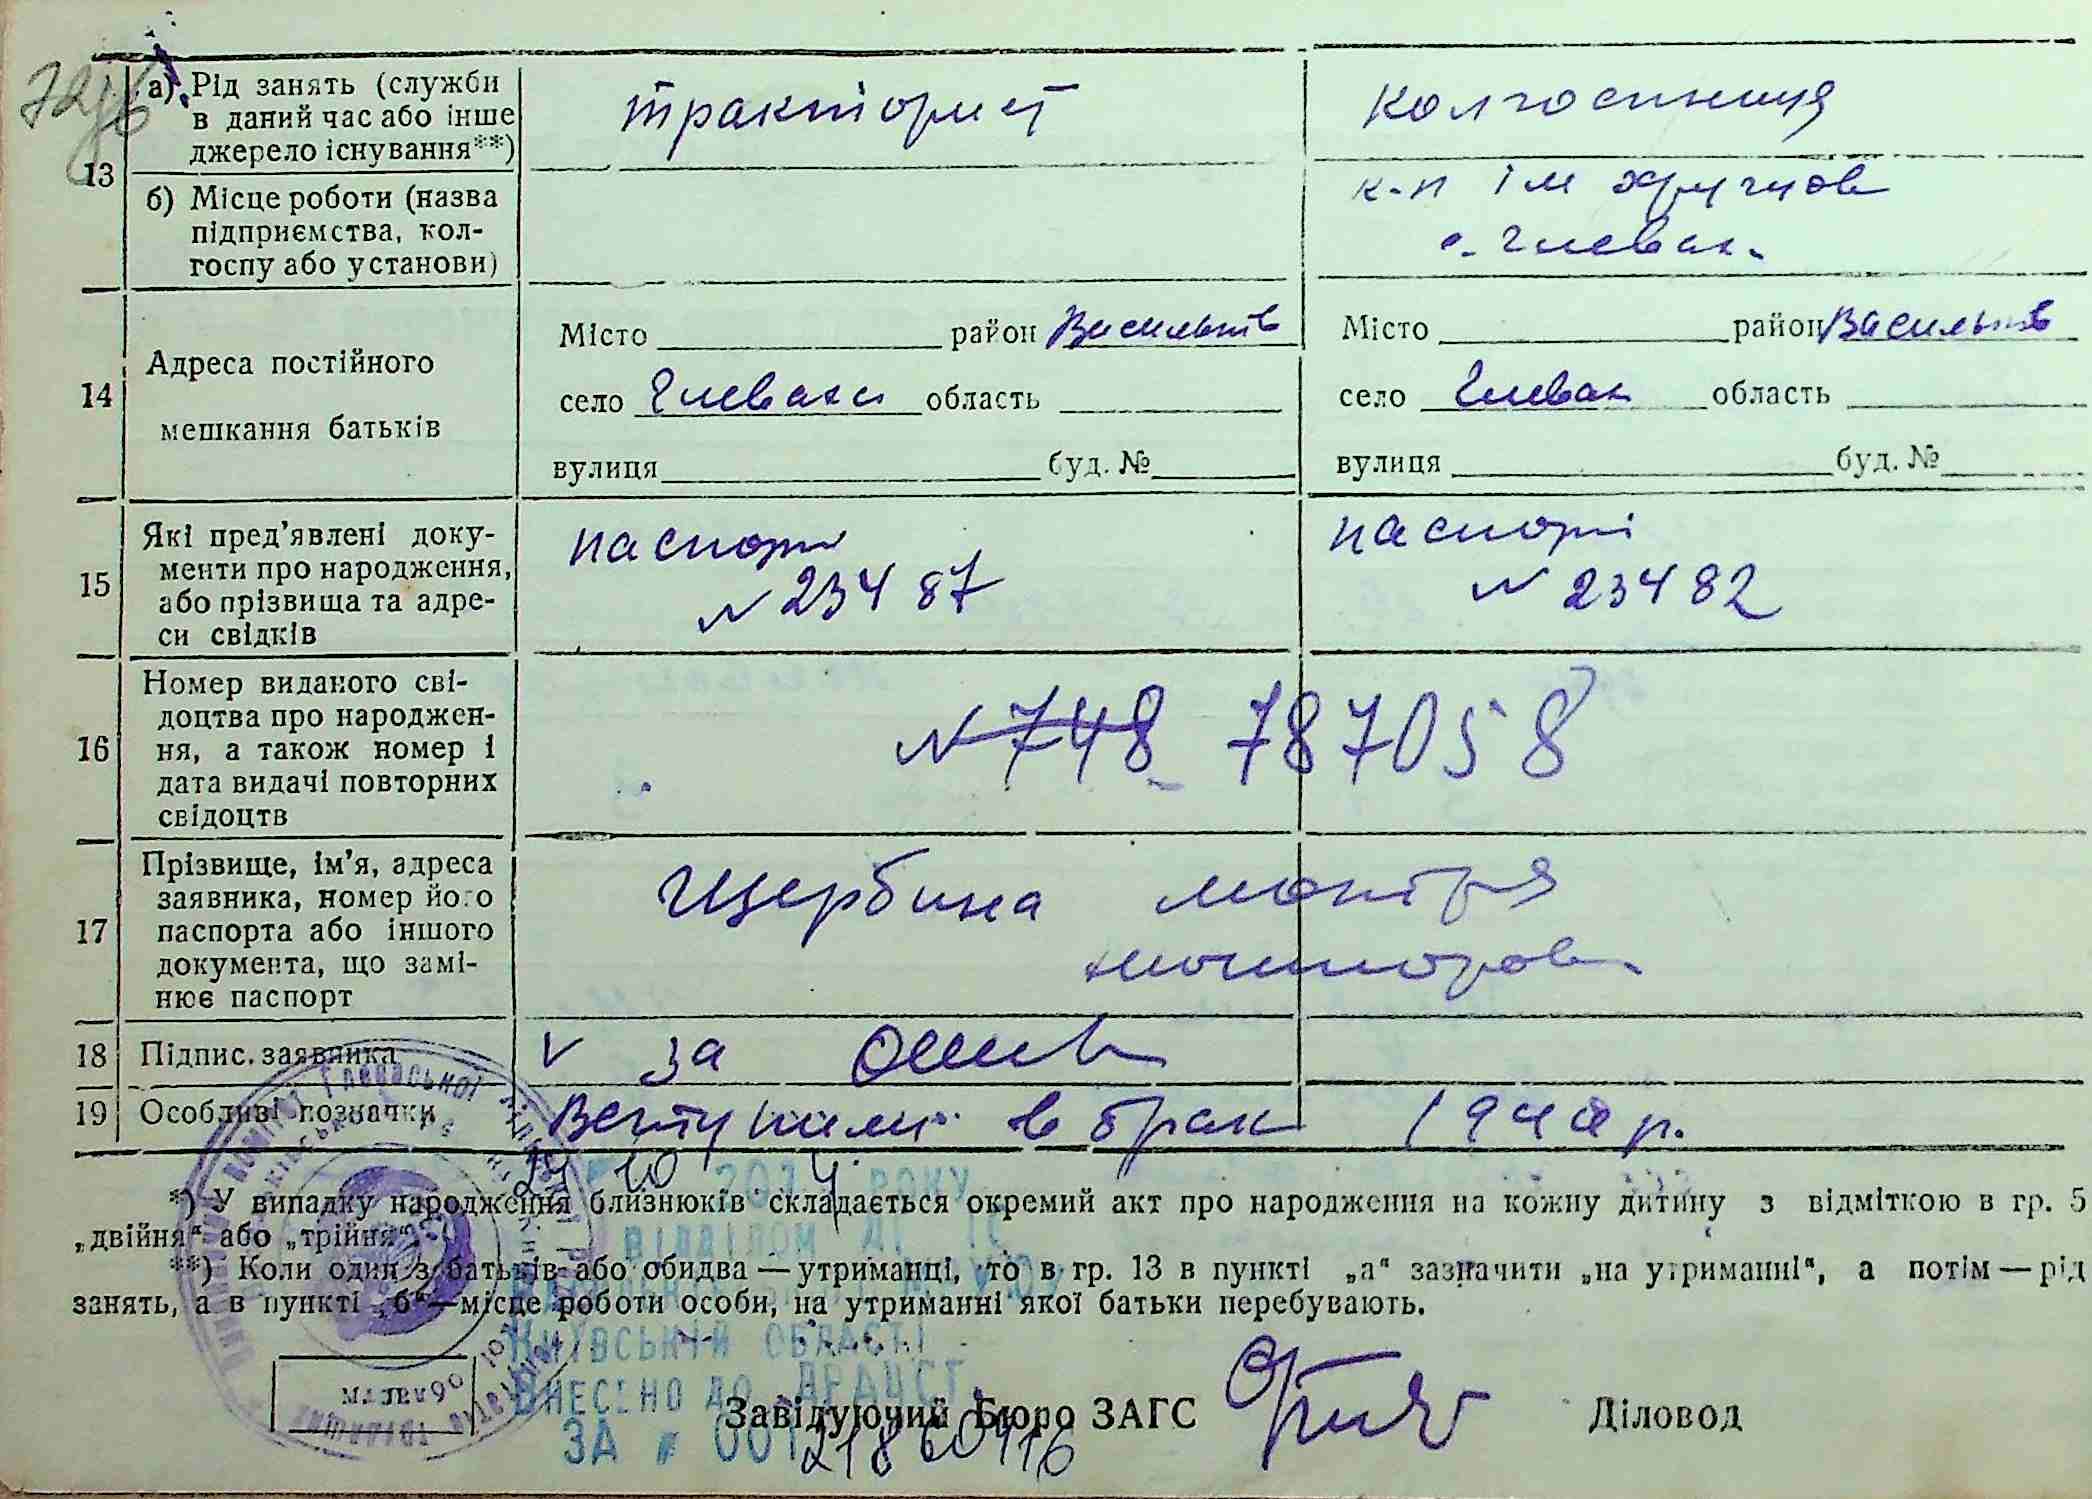 13
а) Рід занять (служби
в даний час або інше
джерело існування**)
тракторист
колгоспниця
б) Місце роботи (назва
підприємства, кол-
госпу або установи)
к-п ім
с.
14
Адреса постійного
мешкання батьків
Місто район Васильків
село Глеваха область
вулиця буд. №
Місто район Васильків
село Глевах область
вулиця буд. №
15
Які пред'явлені доку-
менти про народження,
або прізвища та адре-
си свідків
паспорт
№ 23487
паспорт
№ 23482
16
Номер виданого сві-
доцтва про народжен-
ня, а також номер і
дата видачі повторних
свідоцтв
№ 748 787058
17
Прізвище, ім'я, адреса
заявника, номер його
паспорта або іншого
документа, що замі-
нює паспорт
Щербина Мотря
18
Підпис заявника
V за
19
Особливі позначки
Вступили в брак 1944 р.
*) У випадку народження близнюків складається окремий акт про народження на кожну дитину з відміткою в гр. 5
„двійня“ або „трійня“.
**) Коли один з батьків або обидва — утриманці, то в гр. 13 в пункті „а“ зазначити „на утриманні“, а потім — рід
занять, а в пункті „б“—місце роботи особи, на утриманні якої батьки перебувають.
2014 РОКУ
КИЇВСЬКІЙ ОБЛАСТІ
ВНЕСЕНО ДО ДРАЦСГ
ЗА № 00121860416
Завідуючий Бюро ЗАГС
Діловод